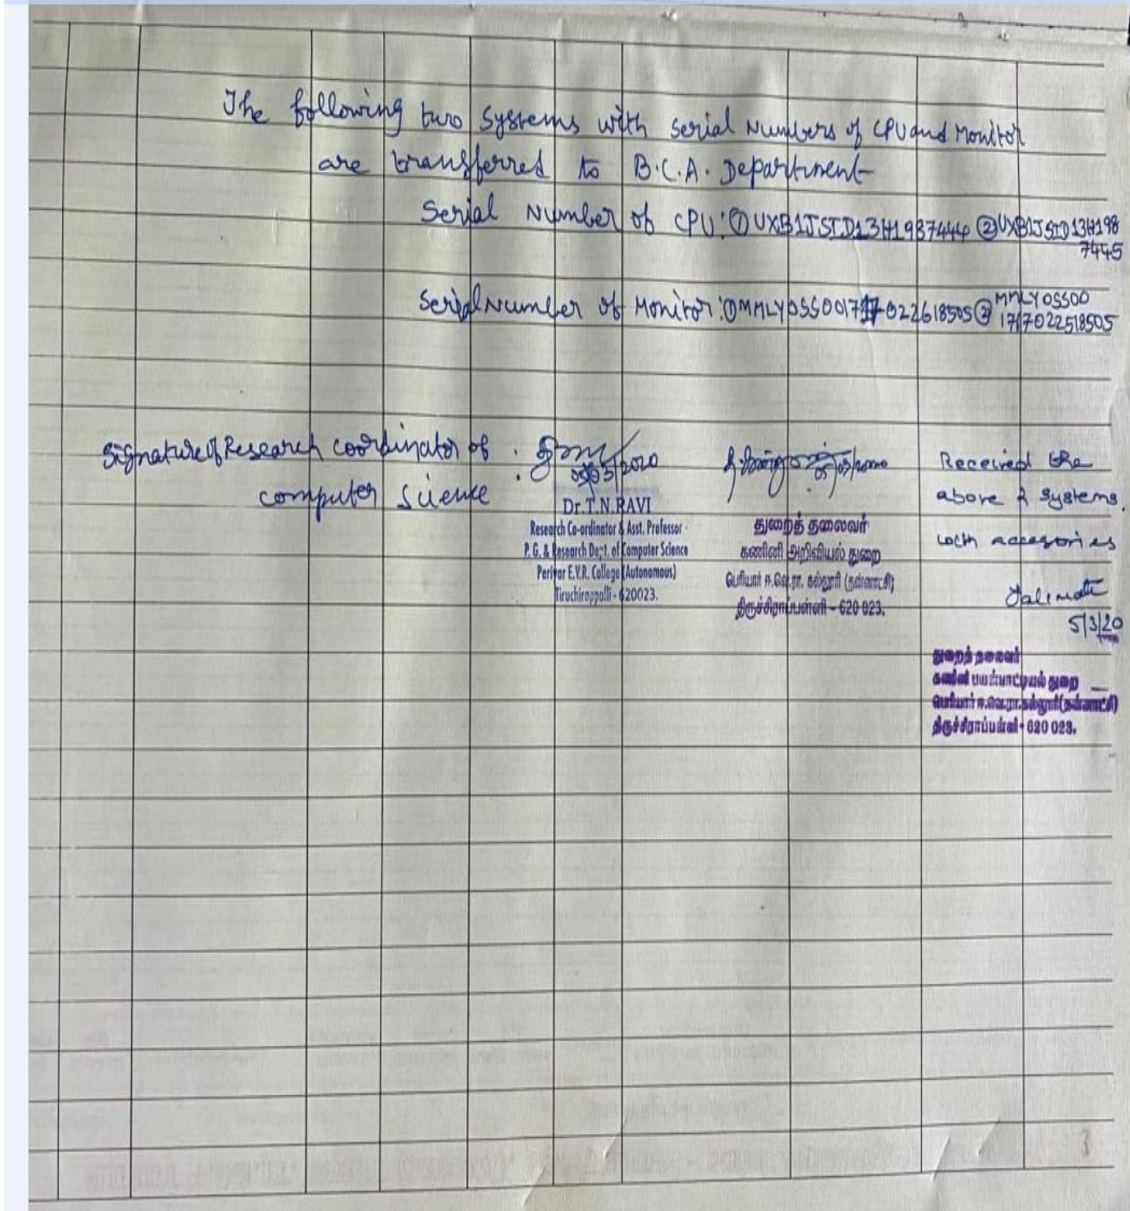 The following two Systems with Serial Numbers of CPU and Monitor
are transferred to B.C.A. Department
Serial Number of CPU: ① UXB1JSID13H1987444 ② UXB1JSID13H198
7445
Serial Number of Monitor: ① MMLYOSS001717022618505 ② MMLYOSS00
1717022518505
Signature of Research coordinator of :
computer Science
05/03/2020
Dr.T.N.RAVI
Research Co-ordinator & Asst. Professor
P.G. & Research Dept. of Computer Science
Periyar E.V.R. College (Autonomous)
Tiruchirappalli - 620023.
05/03/2020
துறைத் தலைவர்
கணினி அறிவியல் துறை
பெரியார் ஈ.வெ.ரா. கல்லூரி (தன்னாட்சி)
திருச்சிராப்பள்ளி – 620 023.
Received the
above 2 Systems
with accesories
5/3/20
துறைத் தலைவர்
கணினி பயன்பாட்டியல் துறை
பெரியார் ஈ.வெ.ரா.கல்லூரி(தன்னாட்சி)
திருச்சிராப்பள்ளி - 620 023.